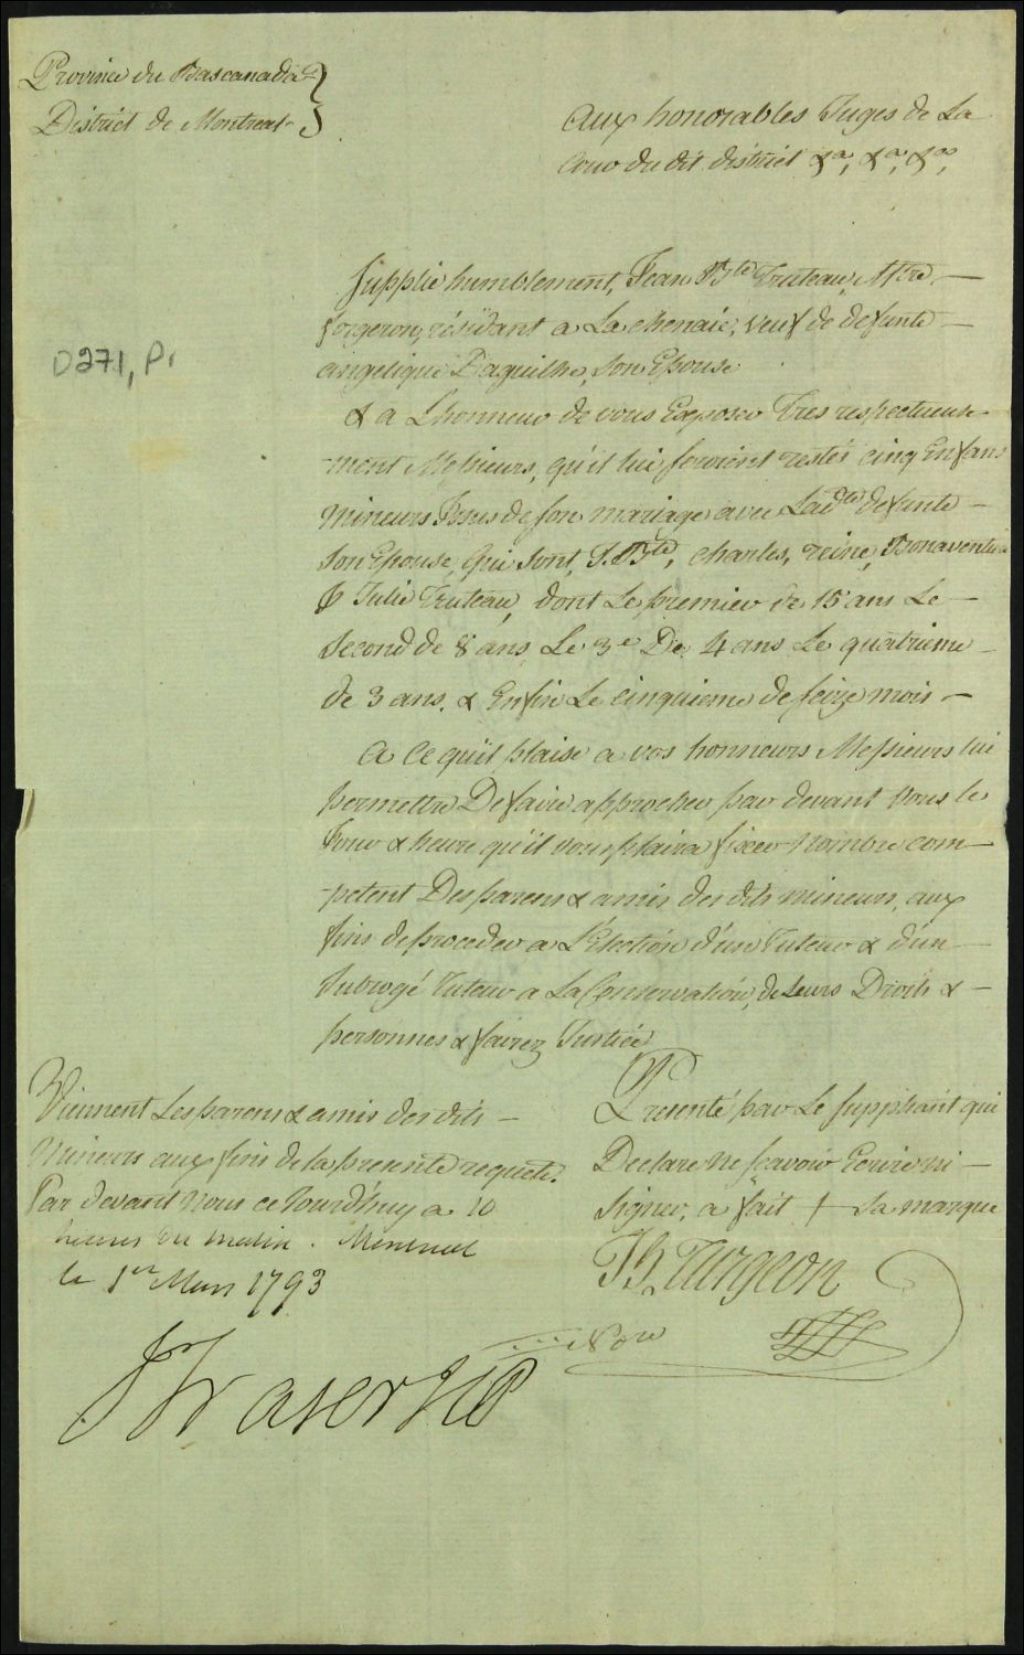 Province du Bascanada
District de Montreal
Aux honorables Juges de La
Cour du dit district &a, &a, &a,
Supplie humblement, Jean Bte Truteau, Mtre
forgeron, résidant a Lachenaie, veuf de defunte
angelique Daguilhe, Son Epouse
D271, P1
& a L'honneur de vous Exposer Tres respectueuse-
-ment Messieurs, qu'il lui seroient restés cinq Enfans
mineurs Issus de son mariage avec Ladte defunte
Son Epouse, Qui sont, J. Bte, charles, reine, Bonaventure
& Julie Truteau, dont Le premier de 15 ans Le
Second de 8 ans Le 3e De 4 ans Le quatrieme
de 3 ans. & Enfin Le cinquieme de seize mois
A Ce qu'il plaise a vos honneurs Messieurs lui
permettre De faire approcher par devant Vous les
Jour & heure qu'il vous plaira fixer Nombre com-
-petent Des parens & amis des dits mineurs, aux
fins de proceder a L'Election d'un Tuteur & d'un
Subrogé Tuteur a La Conservation, de Leurs Droits &
personnes & fairez Justice
Viennent Les parens & amis des dits
Mineurs aux fins de la presente requete.
Par devant Nous ce Jourd'huy a 10
heures du matin. Montreal
le 1er Mars 1793
J Fraser JCP
Presenté par Le suppliant qui
Declare ne sçavoir Ecrire ni
Signer, a fait + Sa marque
Th. Turgeon
Nore